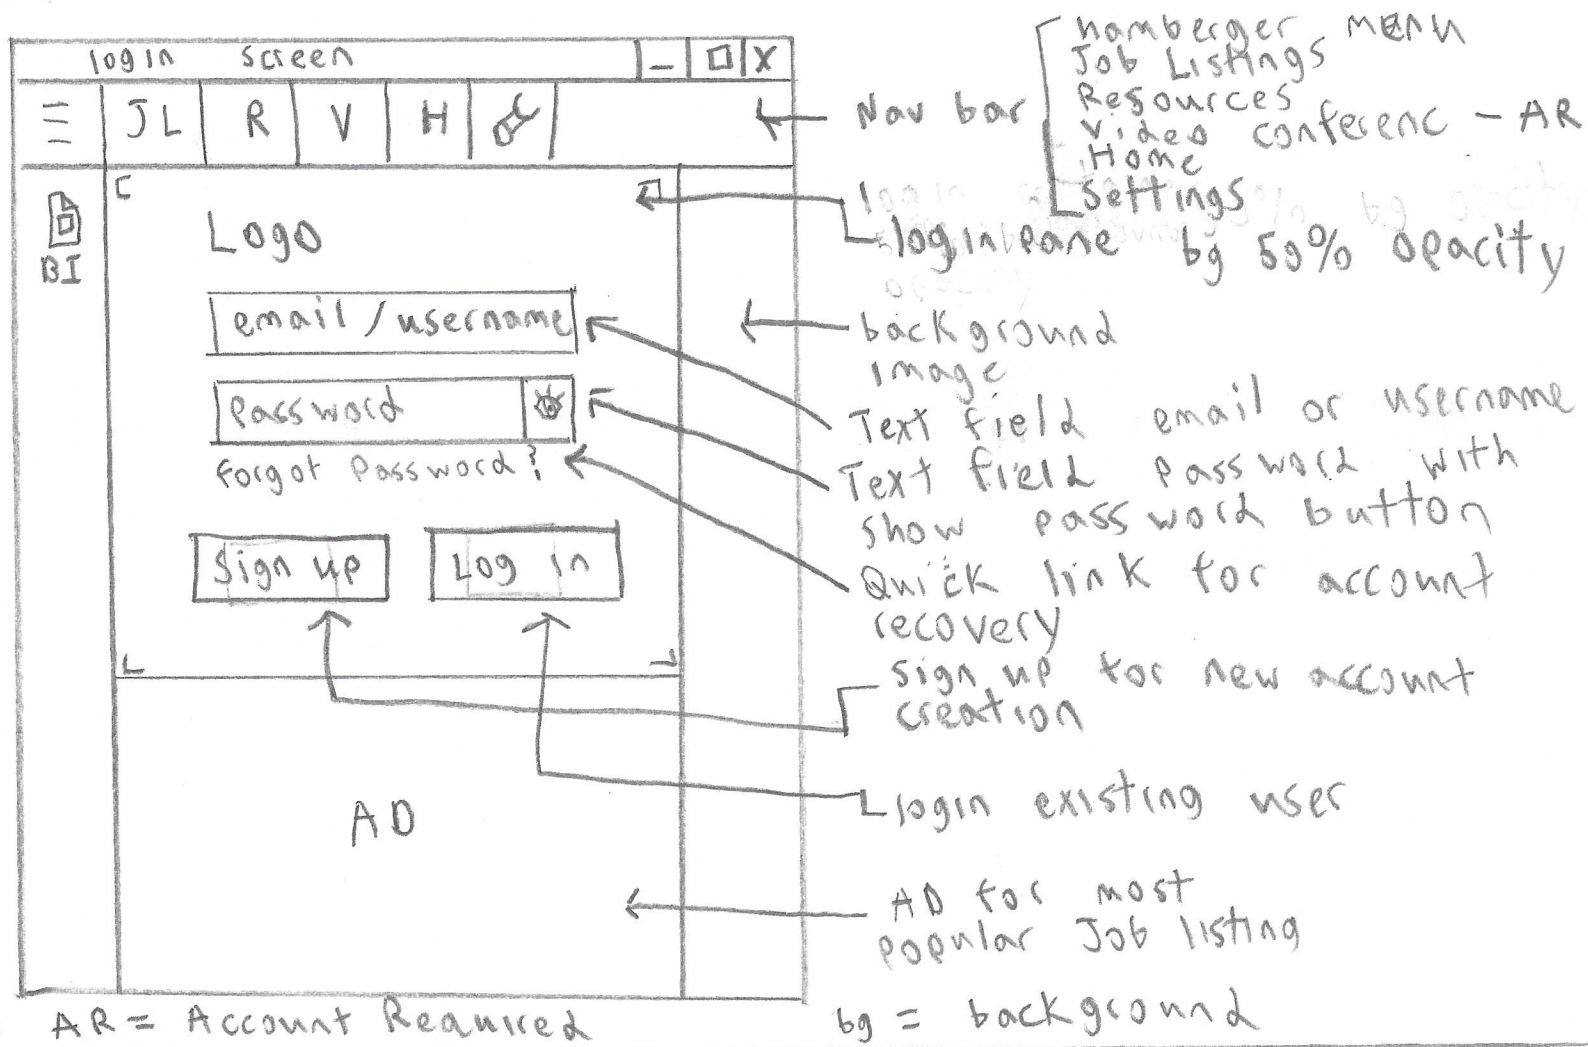 login screen
_ X
JL R V H
BI
Logo
email/username
Password
Forgot Password?
Sign up Log in
AD
Nav bar
hamberger menu
Job Listings
Resources
Video conferenc - AR
Home
Settings
login pane bg 50% opacity
background
image
Text field email or username
Text field password with
show password button
Quick link for account
recovery
sign up for new account
creation
login existing user
AD for most
popular Job listing
AR = Account Required
bg = background